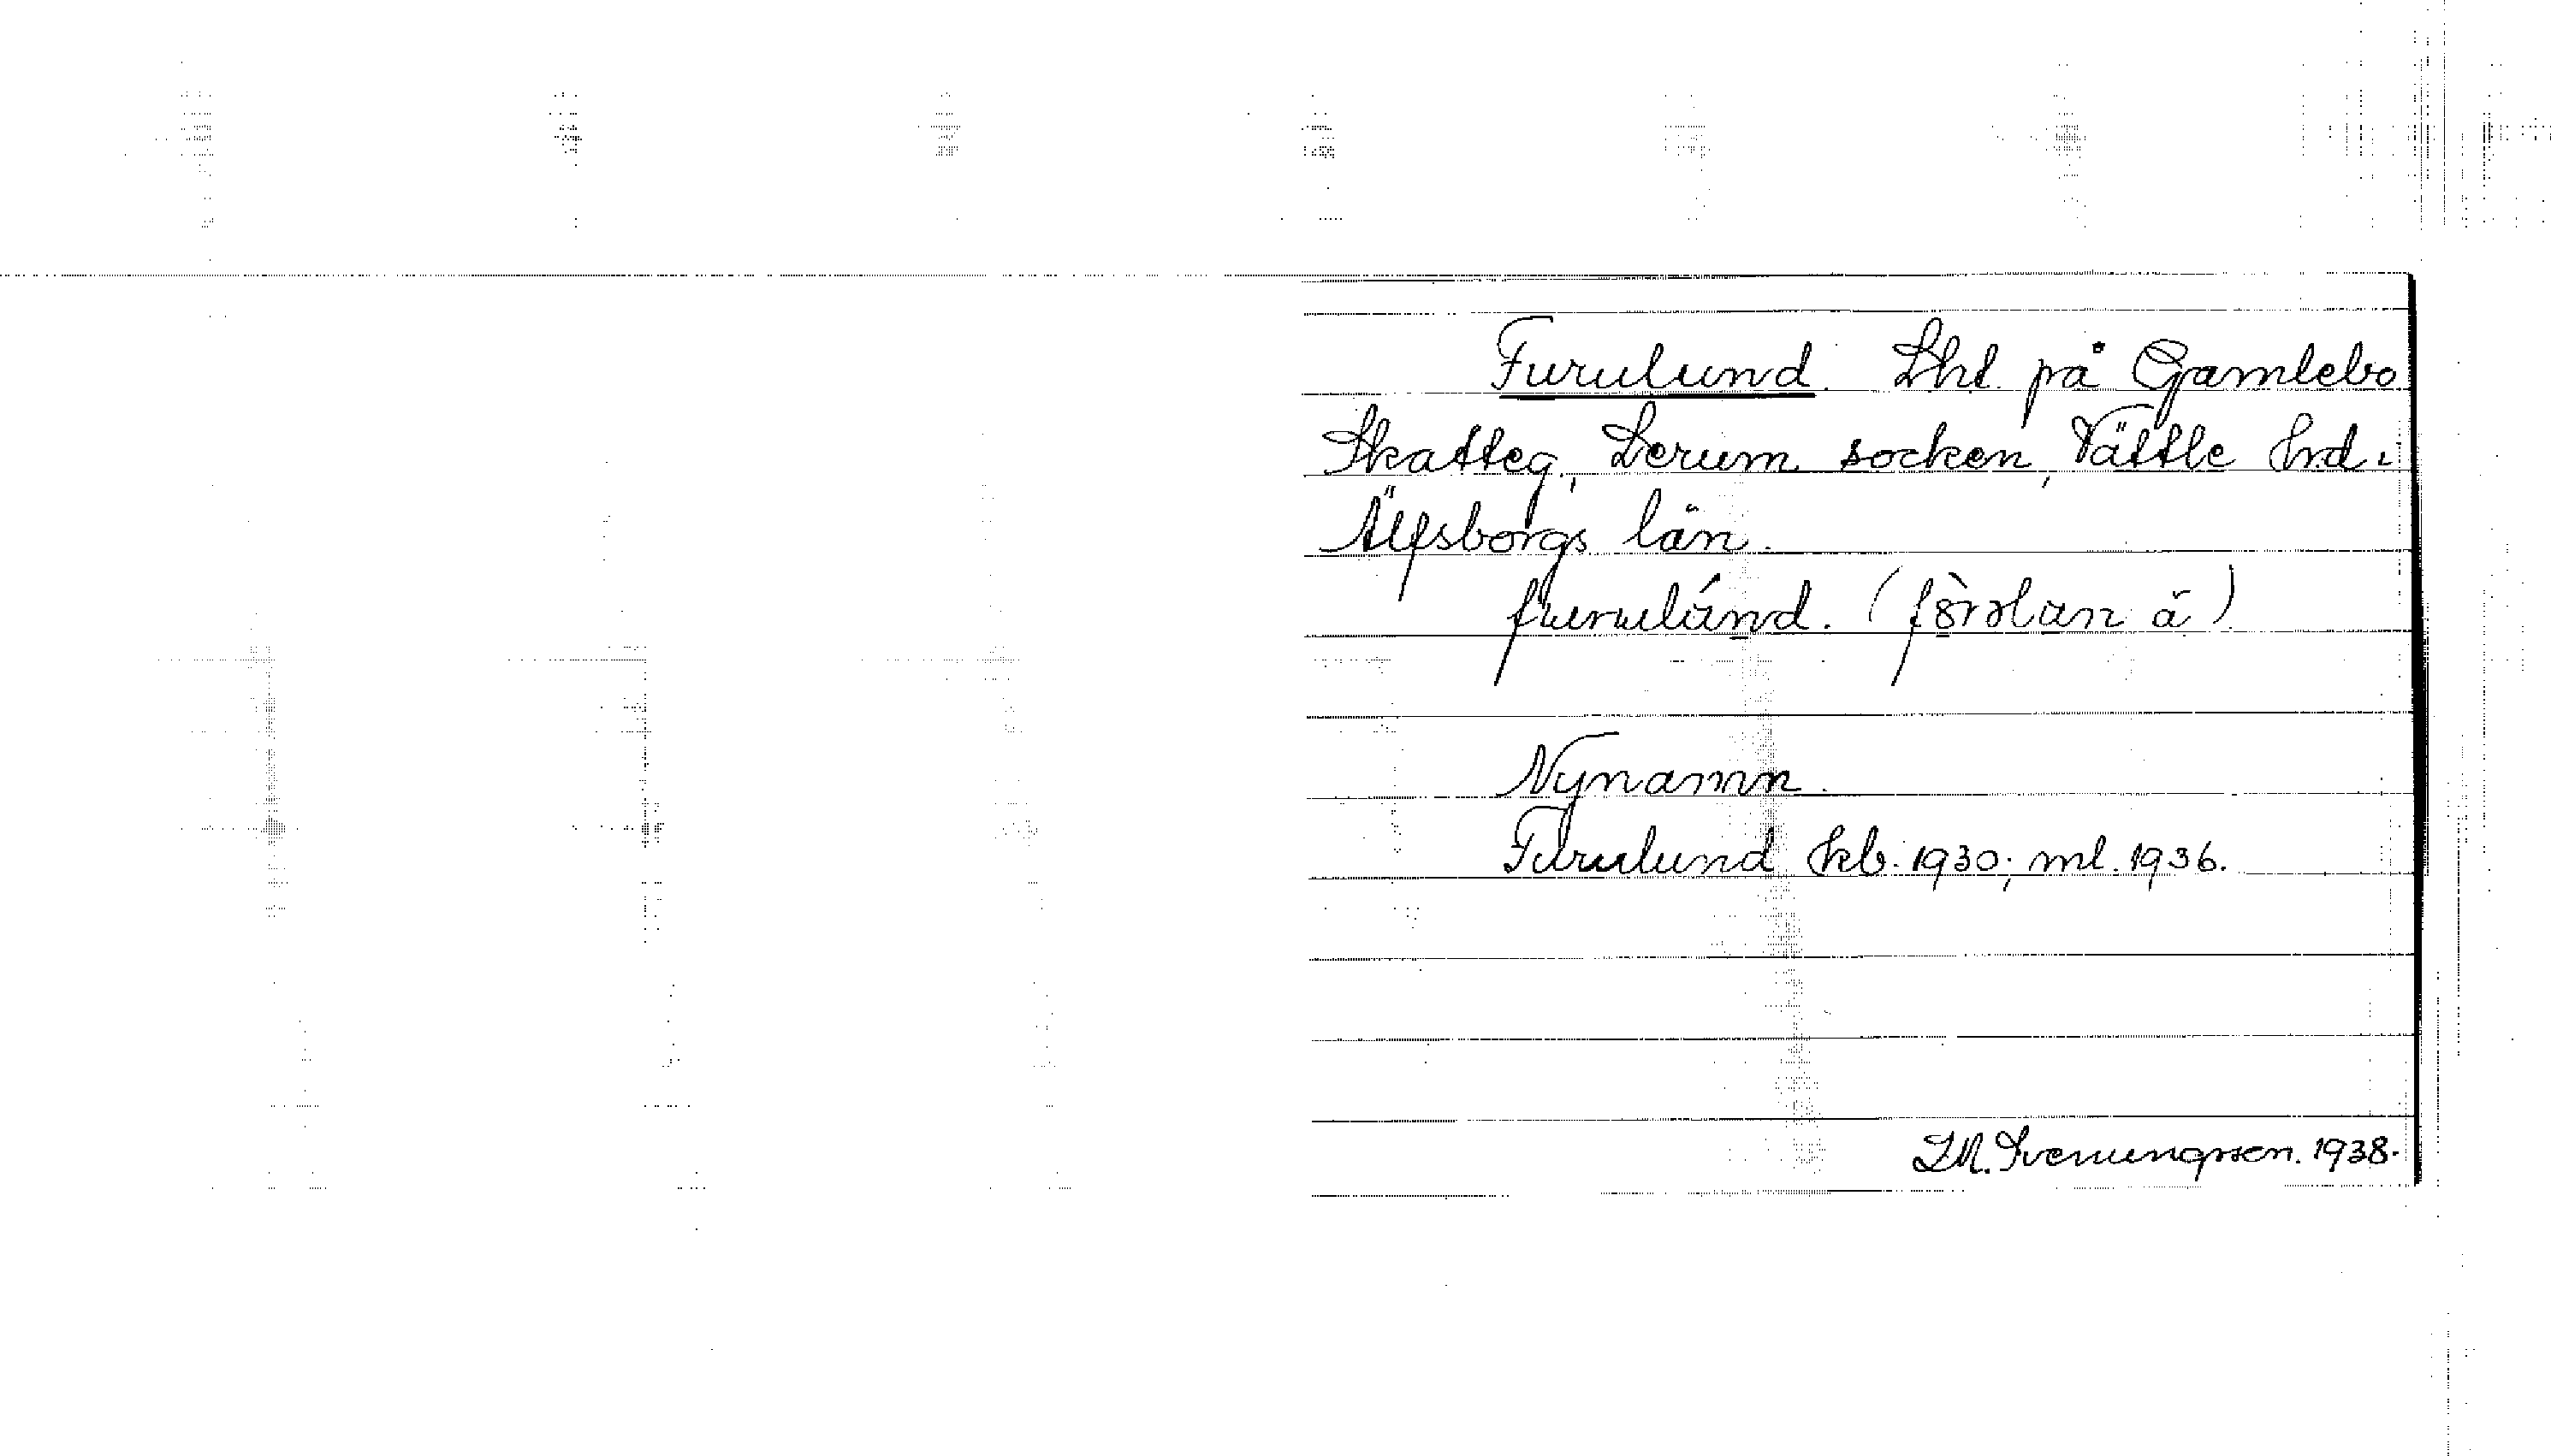 Furulund. Lht. på Gamlebo
Skatteg., Lerum socken, Vättle hrd.
Älfsborgs län.
furulúnd. (
Nynamn.
Furulund kb. 1930; ml. 1936.
I.M. Svenungsson. 1938.